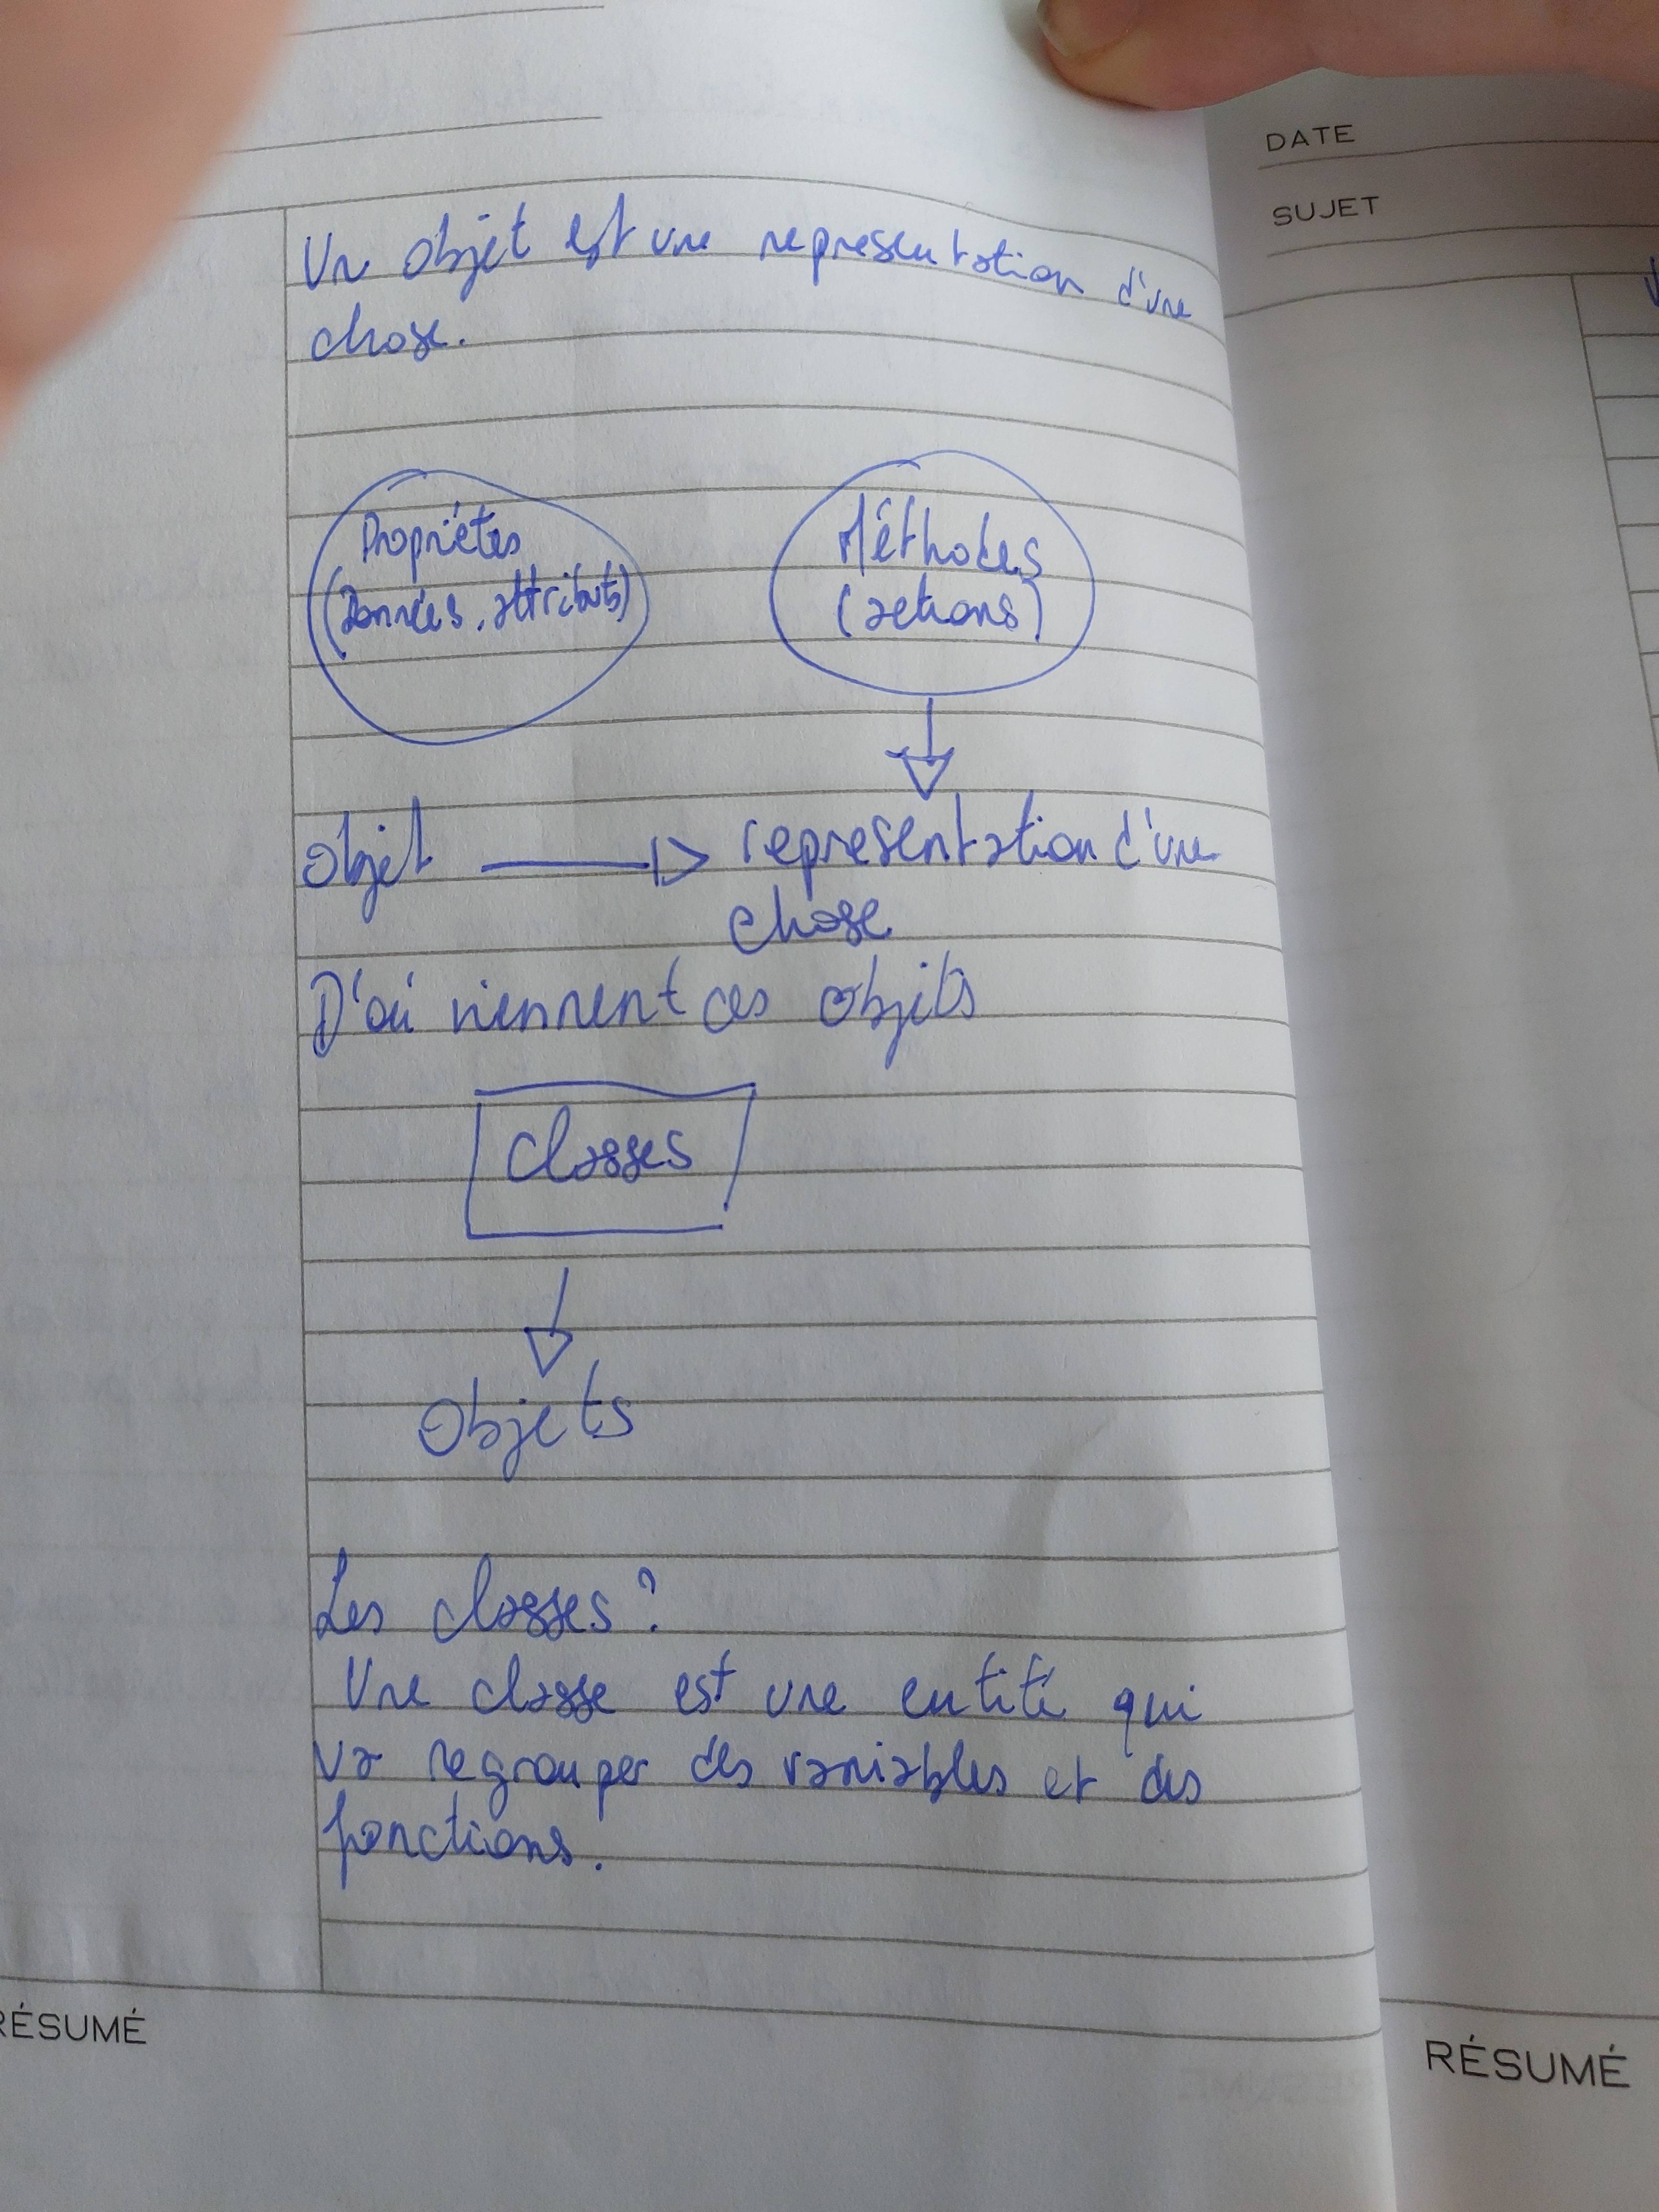 DATE
SUJET
Un objet est une representation d'une
chose.
Propriétes
(Données, attributs)
Méthodes
(actions)
Objet representation d'une
chose
D'où viennent ces objets
Classes
Objets
Les classes?
Une classe est une entité qui
va regrouper des variables et des
fonctions.
RÉSUMÉ
RÉSUMÉ